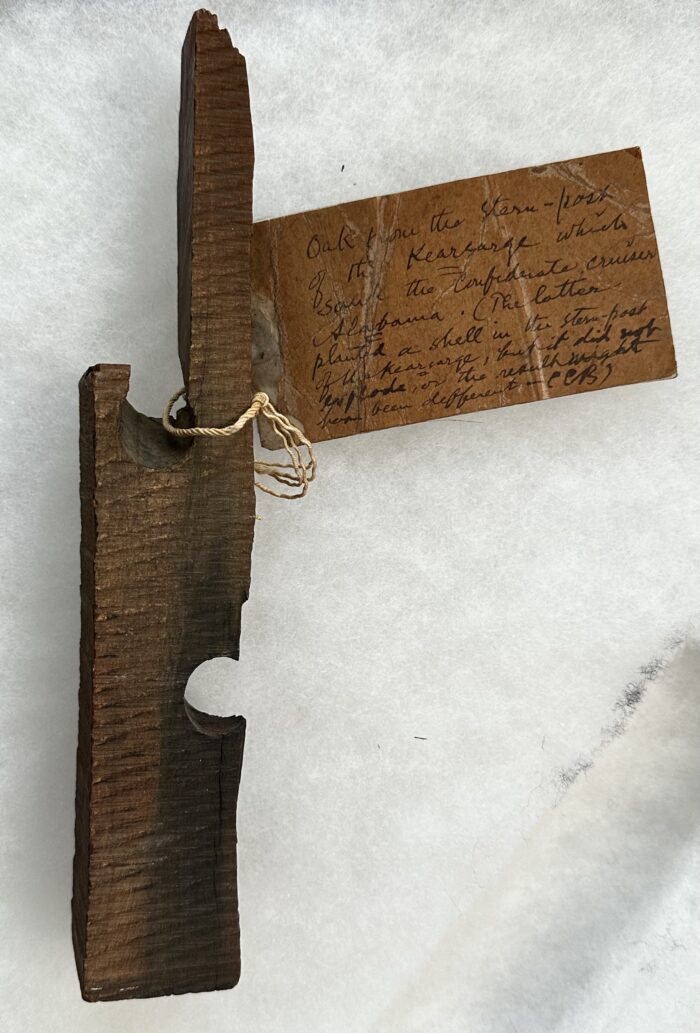 Oak from the stern-post
of the Kearsarge which
sank the Confiderate cruiser
Alabama. (The latter
planted a shell in the stern-post
of the Kearsarge, but it did not
explode, or the result might
have been defferent - CCB)